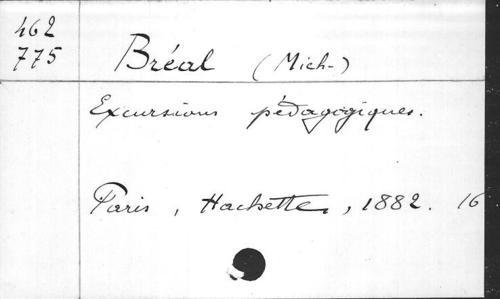 462
775
Bréal (Mich-)
Excursions pédagogiques.
Paris, Hachette, 1882. 16